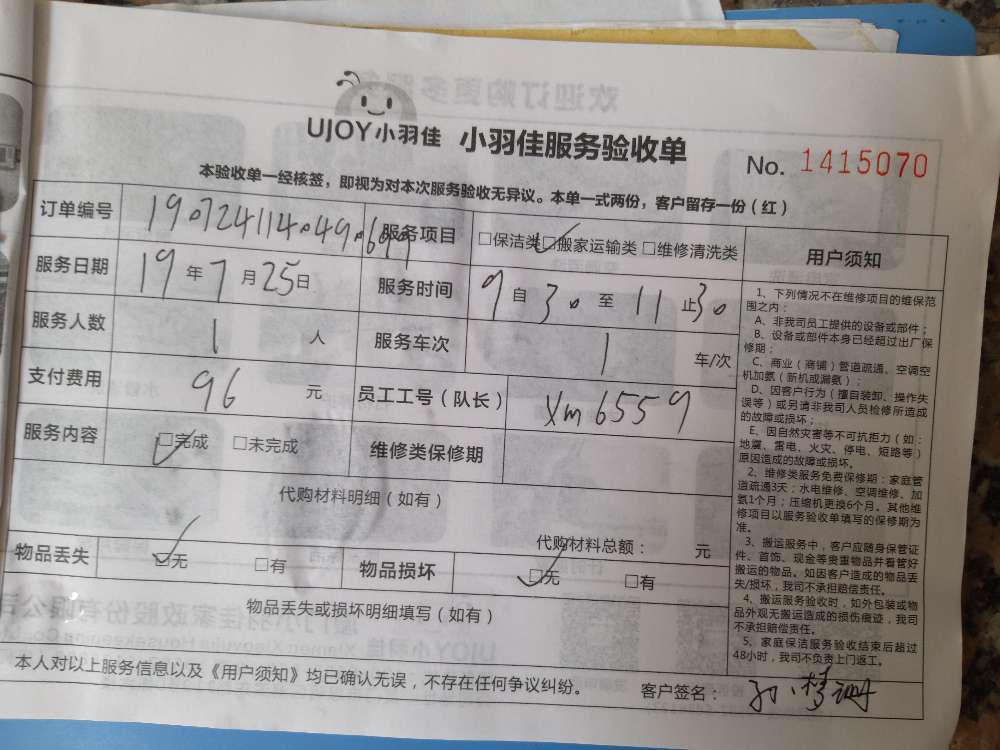 UJOY小羽佳 小羽佳服务验收单
No. 1415070
本验收单一经核签，即视为对本次服务验收无异议。本单一式两份，客户留存一份（红）
订单编号 190724114049069 服务项目 □保洁类 □搬家运输类 □维修清洗类
服务日期 19年7月25日 服务时间 9自30至11止30
服务人数 1 人 服务车次 1 车/次
支付费用 96 元 员工工号（队长） Xm6559
服务内容 □完成 □未完成 维修类保修期
代购材料明细（如有）
代购材料总额： 元
物品丢失 □无 □有 物品损坏 □无 □有
物品丢失或损坏明细填写（如有）
本人对以上服务信息以及《用户须知》均已确认无误，不存在任何争议纠纷。 客户签名：
用户须知
1、下列情况不在维修项目的维保范
围之内：
A、非我司员工提供的设备或部件；
B、设备或部件本身已经超过出厂保
修期；
C、商业（商铺）管道疏通、空调空
机加氨（新机或漏氨）；
D、因客户行为（擅自装卸、操作失
误等）或另请非我司人员检修所造成
的故障或损坏；
E、因自然灾害等不可抗拒力（如：
地震、雷电、火灾、停电、短路等）
原因造成的故障或损坏。
2、维修类服务免费保修期：家庭管
道疏通3天；水电维修、空调维修、加
氨1个月；压缩机更换6个月。其他维
修项目以服务验收单填写的保修期为
准。
3、搬运服务中，客户应随身保管证
件、首饰、现金等贵重物品并看管好
搬运的物品。如因客户造成的物品丢
失/损坏，我司不承担赔偿责任。
4、搬运服务验收时，如外包装或物
品外观无搬运造成的损伤痕迹，我司
不承担赔偿责任。
5、家庭保洁服务验收结束后超过
48小时，我司不负责上门返工。